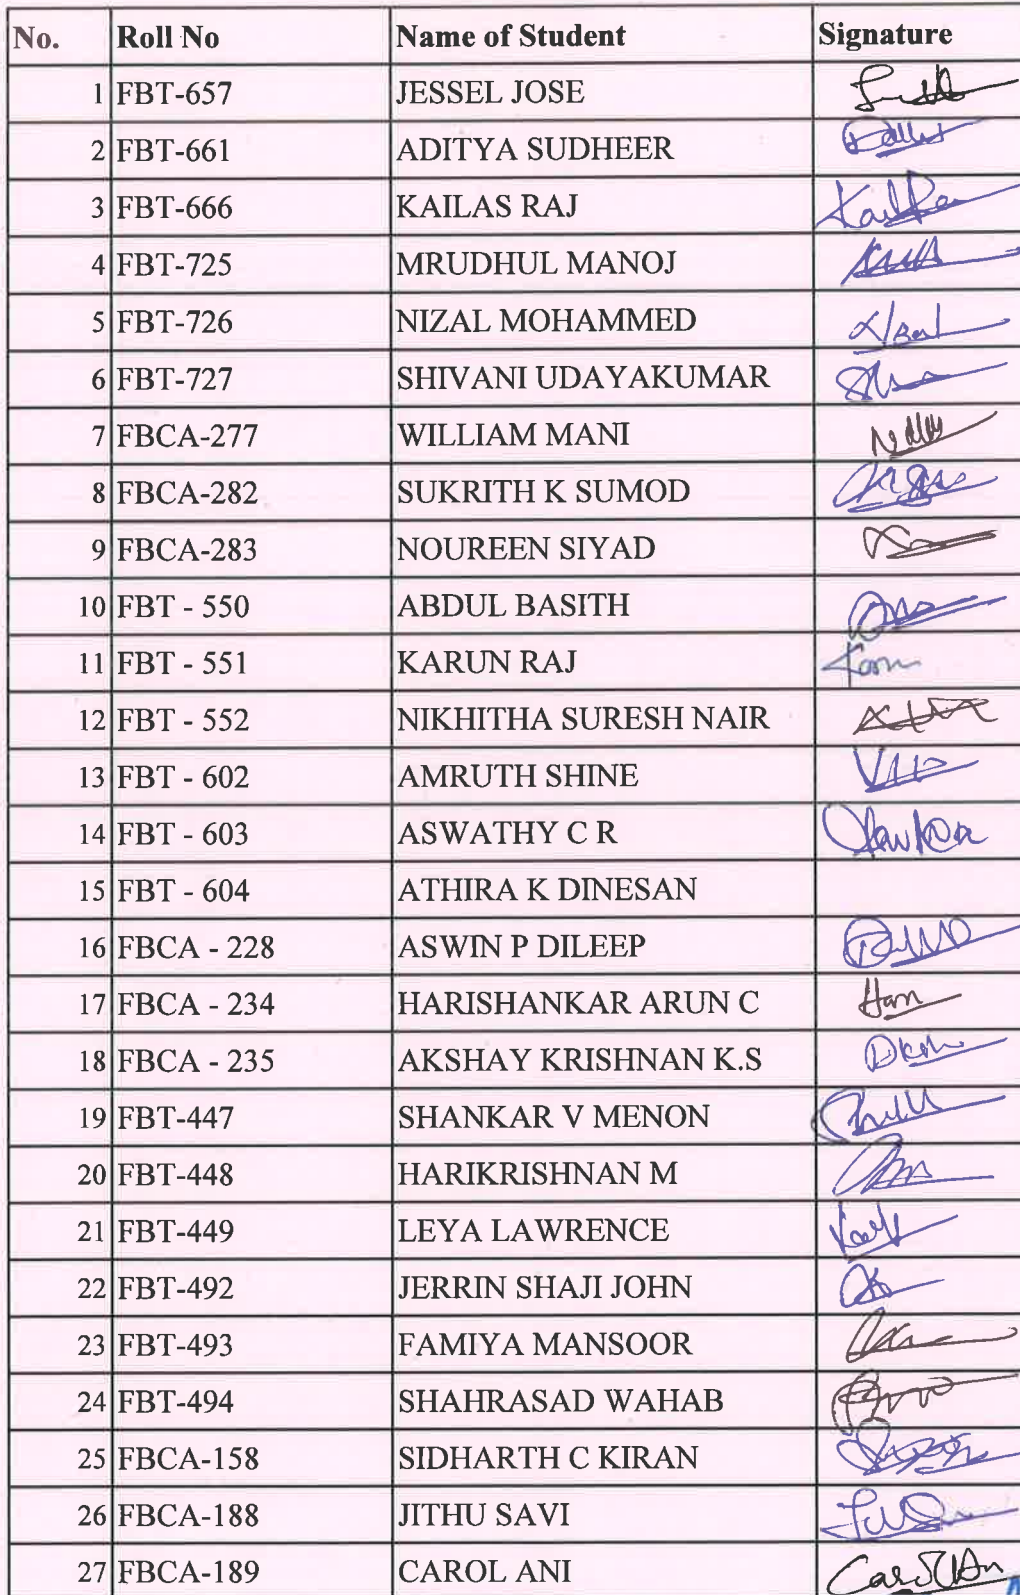 No. Roll No Name of Student Signature
1 FBT-657 JESSEL JOSE
2 FBT-661 ADITYA SUDHEER
3 FBT-666 KAILAS RAJ
4 FBT-725 MRUDHUL MANOJ
5 FBT-726 NIZAL MOHAMMED
6 FBT-727 SHIVANI UDAYAKUMAR
7 FBCA-277 WILLIAM MANI
8 FBCA-282 SUKRITH K SUMOD
9 FBCA-283 NOUREEN SIYAD
10 FBT - 550 ABDUL BASITH
11 FBT - 551 KARUN RAJ
12 FBT - 552 NIKHITHA SURESH NAIR
13 FBT - 602 AMRUTH SHINE
14 FBT - 603 ASWATHY C R
15 FBT - 604 ATHIRA K DINESAN
16 FBCA - 228 ASWIN P DILEEP
17 FBCA - 234 HARISHANKAR ARUN C
18 FBCA - 235 AKSHAY KRISHNAN K.S
19 FBT-447 SHANKAR V MENON
20 FBT-448 HARIKRISHNAN M
21 FBT-449 LEYA LAWRENCE
22 FBT-492 JERRIN SHAJI JOHN
23 FBT-493 FAMIYA MANSOOR
24 FBT-494 SHAHRASAD WAHAB
25 FBCA-158 SIDHARTH C KIRAN
26 FBCA-188 JITHU SAVI
27 FBCA-189 CAROL ANI